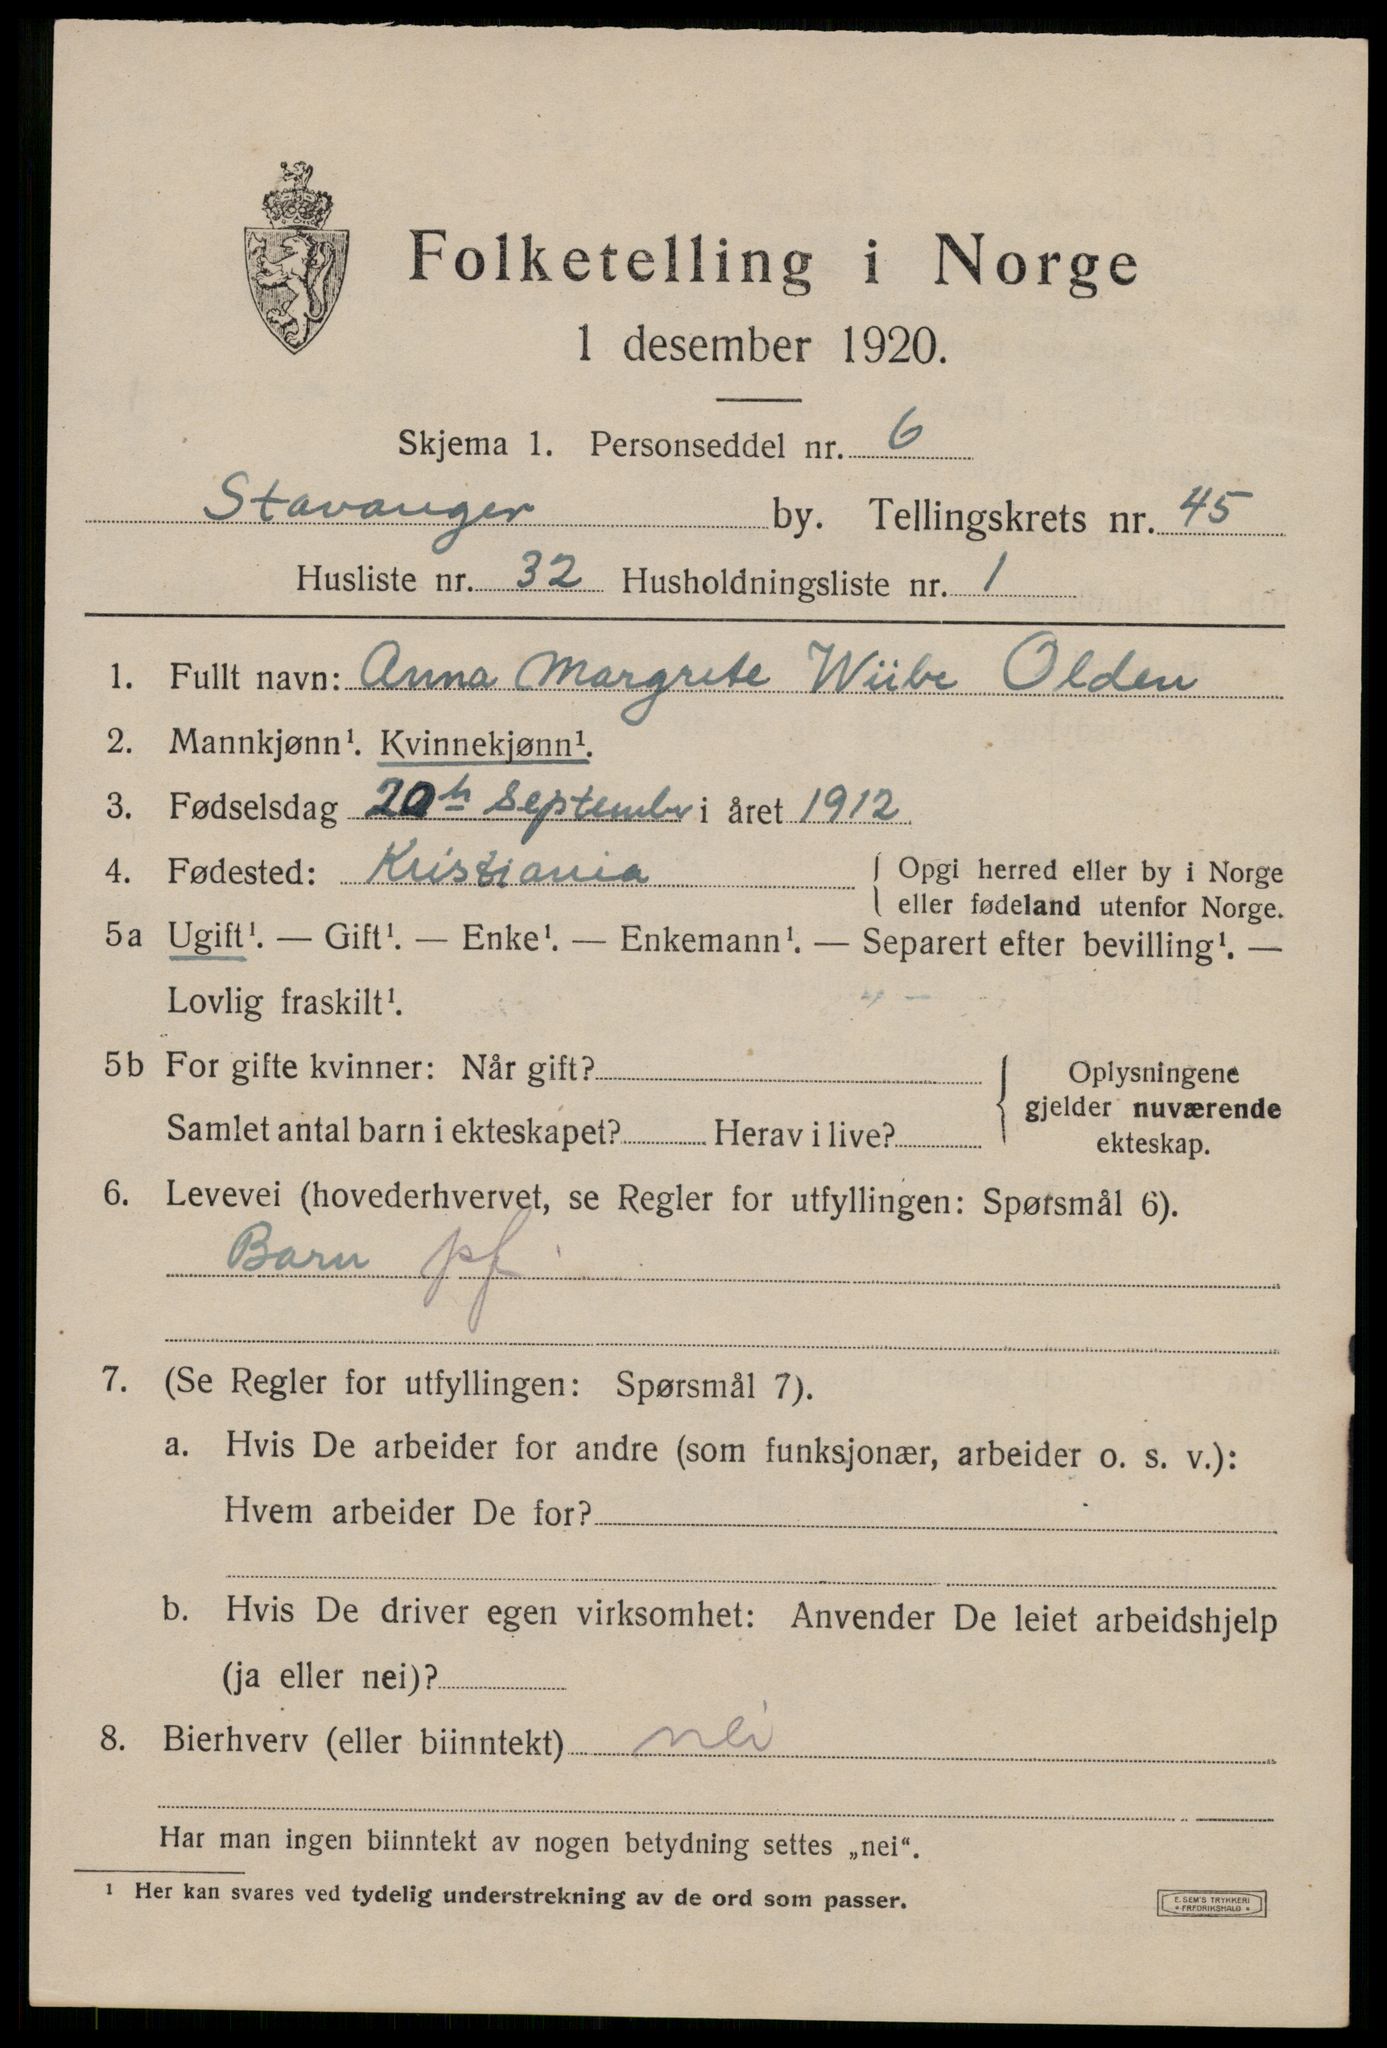 Folketelling i Norge
1 desember 1920.
Skjema 1. Personseddel nr. 6
Stavanger by. Tellingskrets nr. 45
Husliste nr. 32 Husholdningsliste nr. 1
1. Fullt navn: Anna Margrete Wiibe Olden
2. Mannkjønn¹. Kvinnekjønn¹.
3. Fødselsdag 20de September i året 1912
4. Fødested: Kristiania { Opgi herred eller by i Norge
eller fødeland utenfor Norge.
5a Ugift¹. — Gift¹. — Enke¹. — Enkemann¹. — Separert efter bevilling¹. —
Lovlig fraskilt¹.
5b For gifte kvinner: Når gift? { Oplysningene
gjelder nuværende
Samlet antal barn i ekteskapet? Herav i live?
ekteskap.
6. Levevei (hovederhvervet, se Regler for utfyllingen: Spørsmål 6).
Barn pf
7. (Se Regler for utfyllingen: Spørsmål 7).
a. Hvis De arbeider for andre (som funksjonær, arbeider o. s. v.):
Hvem arbeider De for?
b. Hvis De driver egen virksomhet: Anvender De leiet arbeidshjelp
(ja eller nei)?
8. Bierhverv (eller biinntekt) nei
Har man ingen biinntekt av nogen betydning settes „nei“.
¹ Her kan svares ved tydelig understrekning av de ord som passer.
E. SEM'S TRYKKERI
• FREDRIKSHALD •